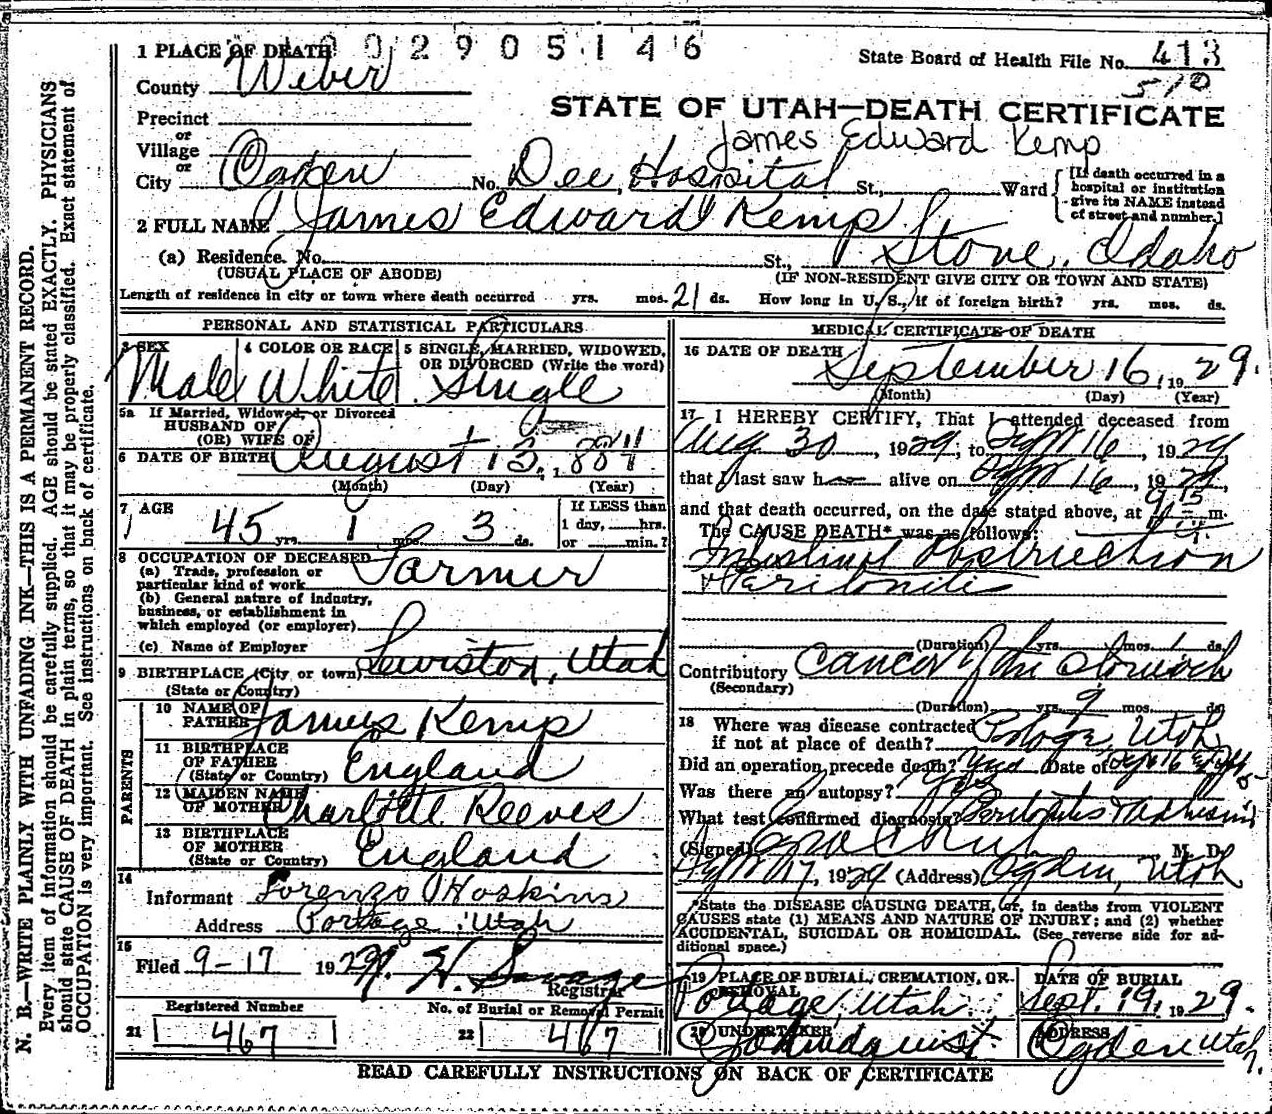 1 PLACE OF DEATH 002905146
State Board of Health File No. 413
510
County Weber
STATE OF UTAH—DEATH CERTIFICATE
Precinct
or
Village
James Edward Kemp
or
City Ogden No. Dee Hospital St., Ward
[If death occurred in a
hospital or institution
give its NAME instead
of street and number.]
2 FULL NAME James Edward Kemp
(a) Residence. No. St., Stone, Idaho
(USUAL PLACE OF ABODE) (IF NON-RESIDENT GIVE CITY OR TOWN AND STATE)
Length of residence in city or town where death occurred yrs. mos. 21 ds. How long in U. S., if of foreign birth? yrs. mos. ds.
PERSONAL AND STATISTICAL PARTICULARS
3 SEX 4 COLOR OR RACE 5 SINGLE, MARRIED, WIDOWED,
OR DIVORCED (Write the word)
Male White Single
5a If Married, Widowed, or Divorced
HUSBAND OF
(OR) WIFE OF
6 DATE OF BIRTH August 13, 1884
(Month) (Day) (Year)
7 AGE If LESS than
45 yrs. 1 mos. 3 ds. 1 day, hrs.
or min.?
8 OCCUPATION OF DECEASED
(a) Trade, profession or
particular kind of work Farmer
(b) General nature of industry,
business, or establishment in
which employed (or employer)
(c) Name of Employer
9 BIRTHPLACE (City or town) Lewiston, Utah
(State or Country)
PARENTS
10 NAME OF
FATHER James Kemp
11 BIRTHPLACE
OF FATHER
(State or Country) England
12 MAIDEN NAME
OF MOTHER Charlotte Reeves
13 BIRTHPLACE
OF MOTHER
(State or Country) England
14
Informant Lorenzo Hoskins
Address Portage, Utah
15
Filed 9-17 1929 H. Savage
Registrar
Registered Number No. of Burial or Removal Permit
21 467 22 467
MEDICAL CERTIFICATE OF DEATH
16 DATE OF DEATH
September 16, 1929.
(Month) (Day) (Year)
17 I HEREBY CERTIFY, That I attended deceased from
Aug 30, 1929, to Sept 16, 1929
that I last saw h alive on Sept 16, 1929,
and that death occurred, on the date stated above, at 9:15 m.
The CAUSE DEATH* was as follows:
Intestinal Obstruction
Peritonitis
(Duration) yrs. mos. 1 ds.
Contributory Cancer of the stomach
(Secondary)
(Duration) yrs. 9 mos. ds.
18 Where was disease contracted
if not at place of death? Portage, Utah
Did an operation precede death? Date of Sept 16
Was there an autopsy? yes
What test confirmed diagnosis?
(Signed) M. D.
Sept 17, 1929 (Address) Ogden, Utah
*State the DISEASE CAUSING DEATH, or, in deaths from VIOLENT
CAUSES state (1) MEANS AND NATURE OF INJURY; and (2) whether
ACCIDENTAL, SUICIDAL OR HOMICIDAL. (See reverse side for ad-
ditional space.)
19 PLACE OF BURIAL, CREMATION, OR DATE OF BURIAL
REMOVAL
Portage, Utah. Sept. 19, 1929.
20 UNDERTAKER ADDRESS
Lindquist Ogden Utah.
READ CAREFULLY INSTRUCTIONS ON BACK OF CERTIFICATE
N. B.—WRITE PLAINLY WITH UNFADING INK—THIS IS A PERMANENT RECORD.
Every item of information should be carefully supplied. AGE should be stated EXACTLY. PHYSICIANS
should state CAUSE OF DEATH in plain terms, so that it may be properly classified. Exact statement of
OCCUPATION is very important. See instructions on back of certificate.